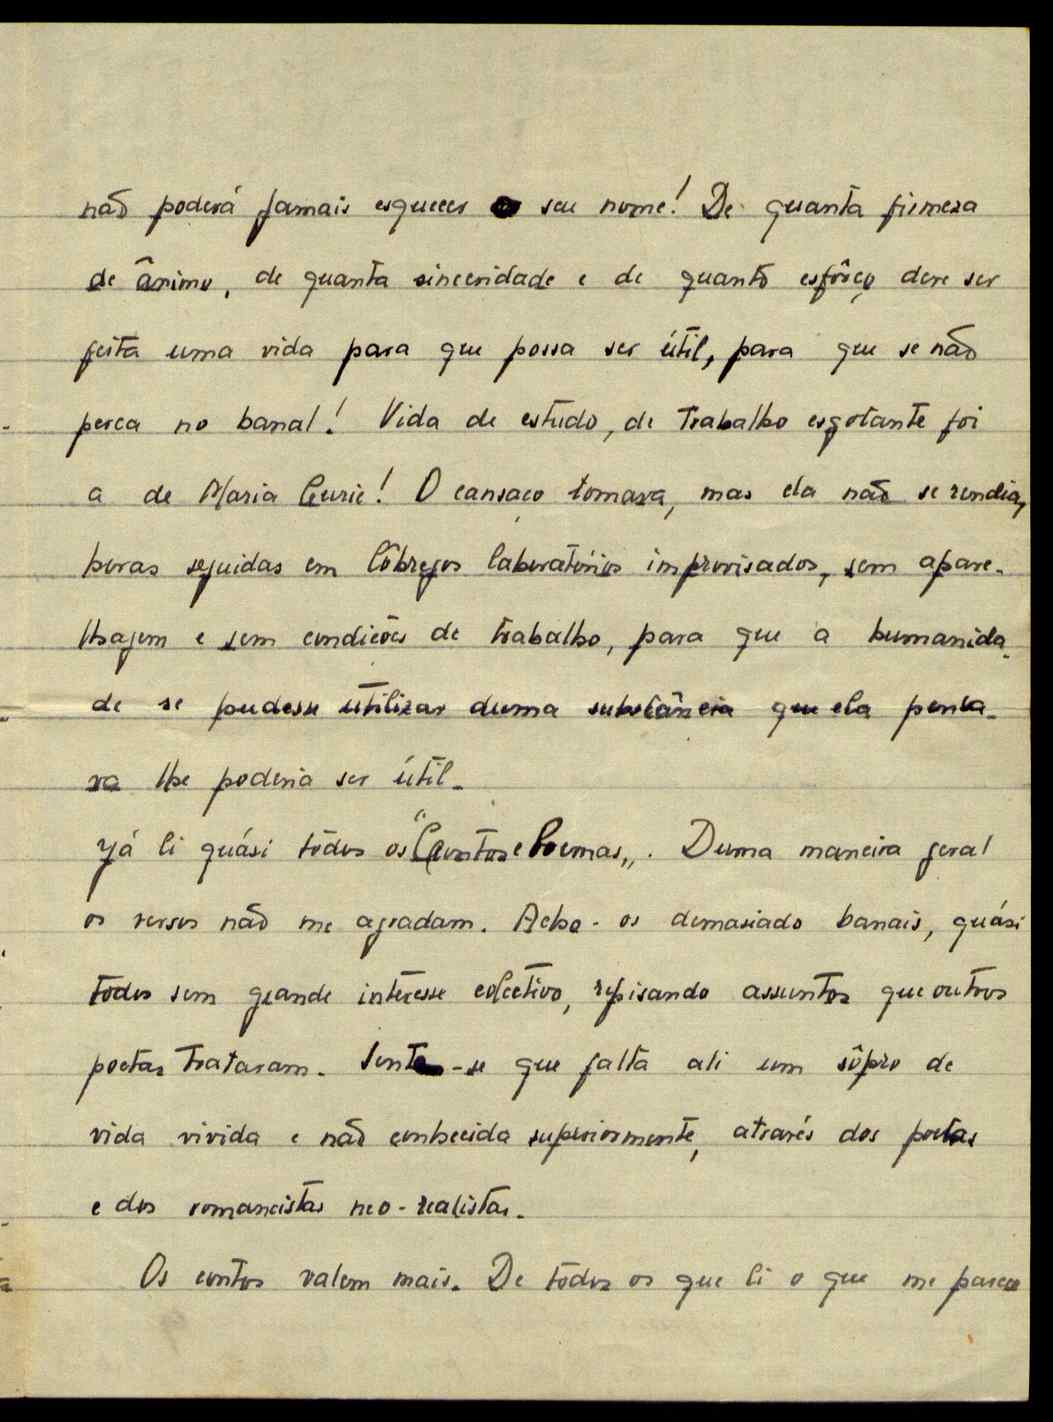 não poderá jamais esquecer o seu nome! De quanta firmeza
de ânimo, de quanta sinceridade e de quanto esfôrço deve ser
feita uma vida para que possa ser útil, para que se não
perca no banal! Vida de estudo, de trabalho esgotante foi
a de Maria Curie! O cansaço tomava, mas ela não se rendia,
horas seguidas em lôbregos laboratórios improvisados, sem apare-
lhagem e sem condições de trabalho, para que a humanida-
de se pudesse utilizar duma substância que ela pensa-
va lhe poderia ser útil.
Já li quási todos os "Contos e Poemas". Duma maneira geral
os versos não me agradam. Acho-os demasiado banais, quási
todos sem grande interesse colectivo, repisando assuntos que outros
poetas trataram. Sente-se que falta ali um sôpro de
vida vivida e não conhecida superiormente, através dos poetas
e dos romancistas neo-realistas.
Os contos valem mais. De todos os que li o que me parece